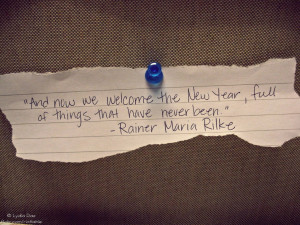 "And now we welcome the New Year, full
of things that have never been."
- Rainer Maria Rilke